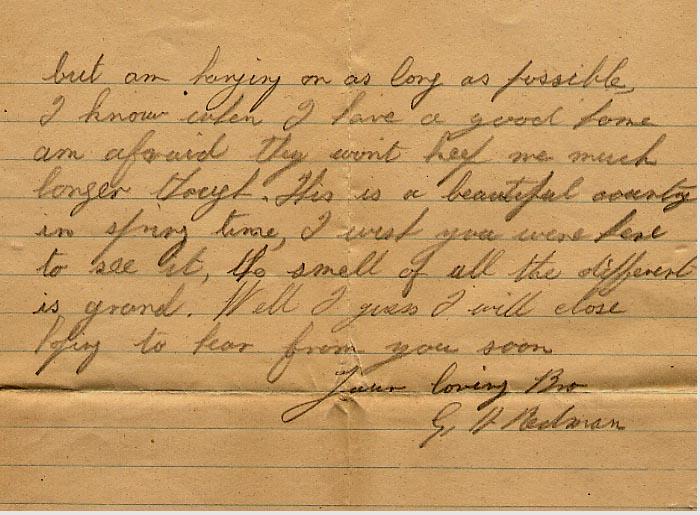 but am hanging on as long as possible,
I know when I have a good home
am afraid they wont keep me much
longer though. This is a beautiful country
in spring time, I wish you were here
to see it, the smell of all the different
is grand. Well I guess I will close
hoping to hear from you soon
Your loving Bro
G, H Redman